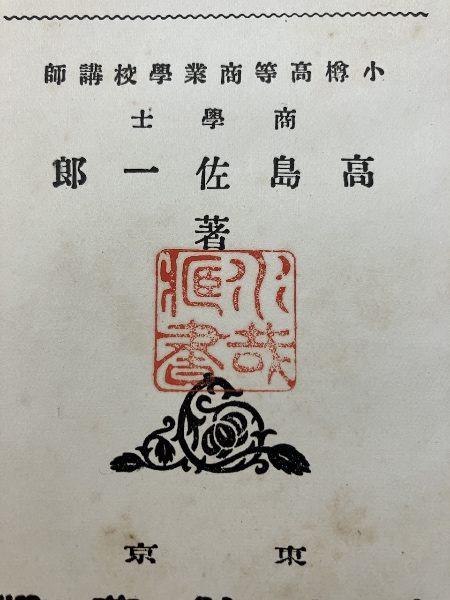 小樽高等商業學校講師
商學士
高島佐一郎
著
水哉
臧書
東京